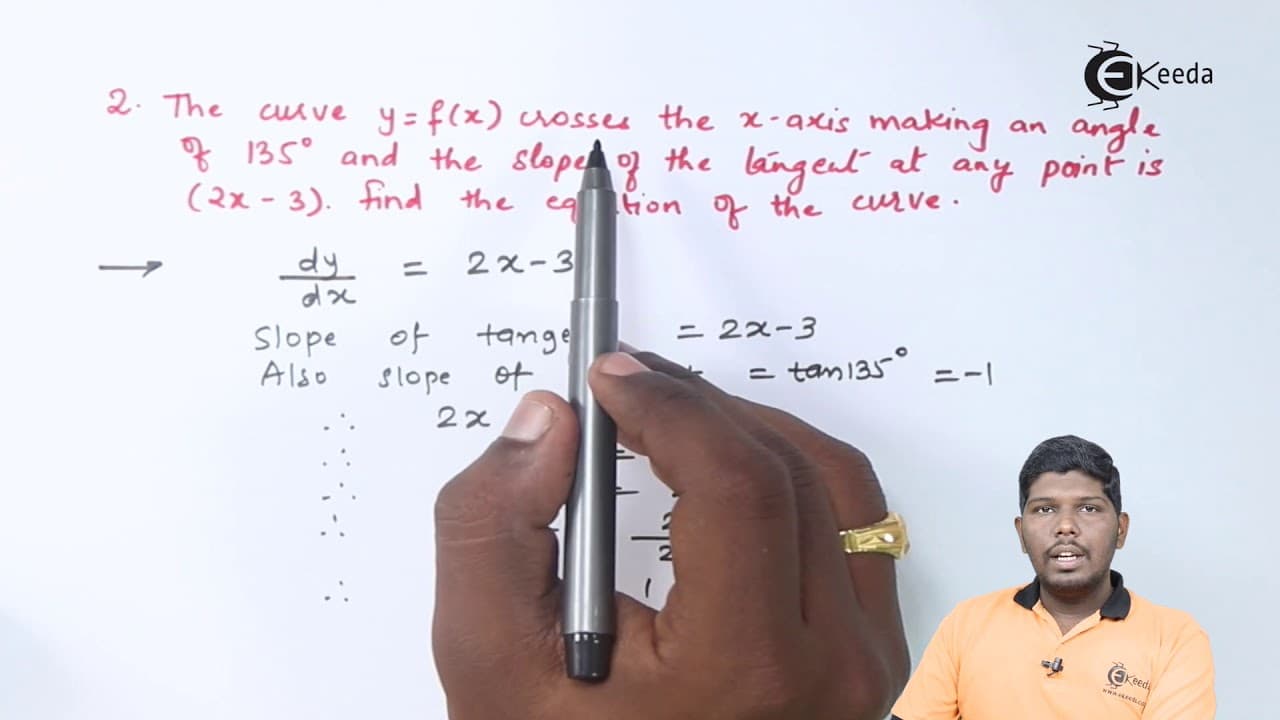 EKeeda
2. The curve y=f(x) crosses the x-axis making an angle
of 135° and the slope of the tangent at any point is
(2x-3). find the of the curve.
dy/dx = 2x-3
Slope of = 2x-3
Also slope of = tan135° = -1
∴ 2x
∴ =
∴ =
∴ 2
∴ 1
EKeeda